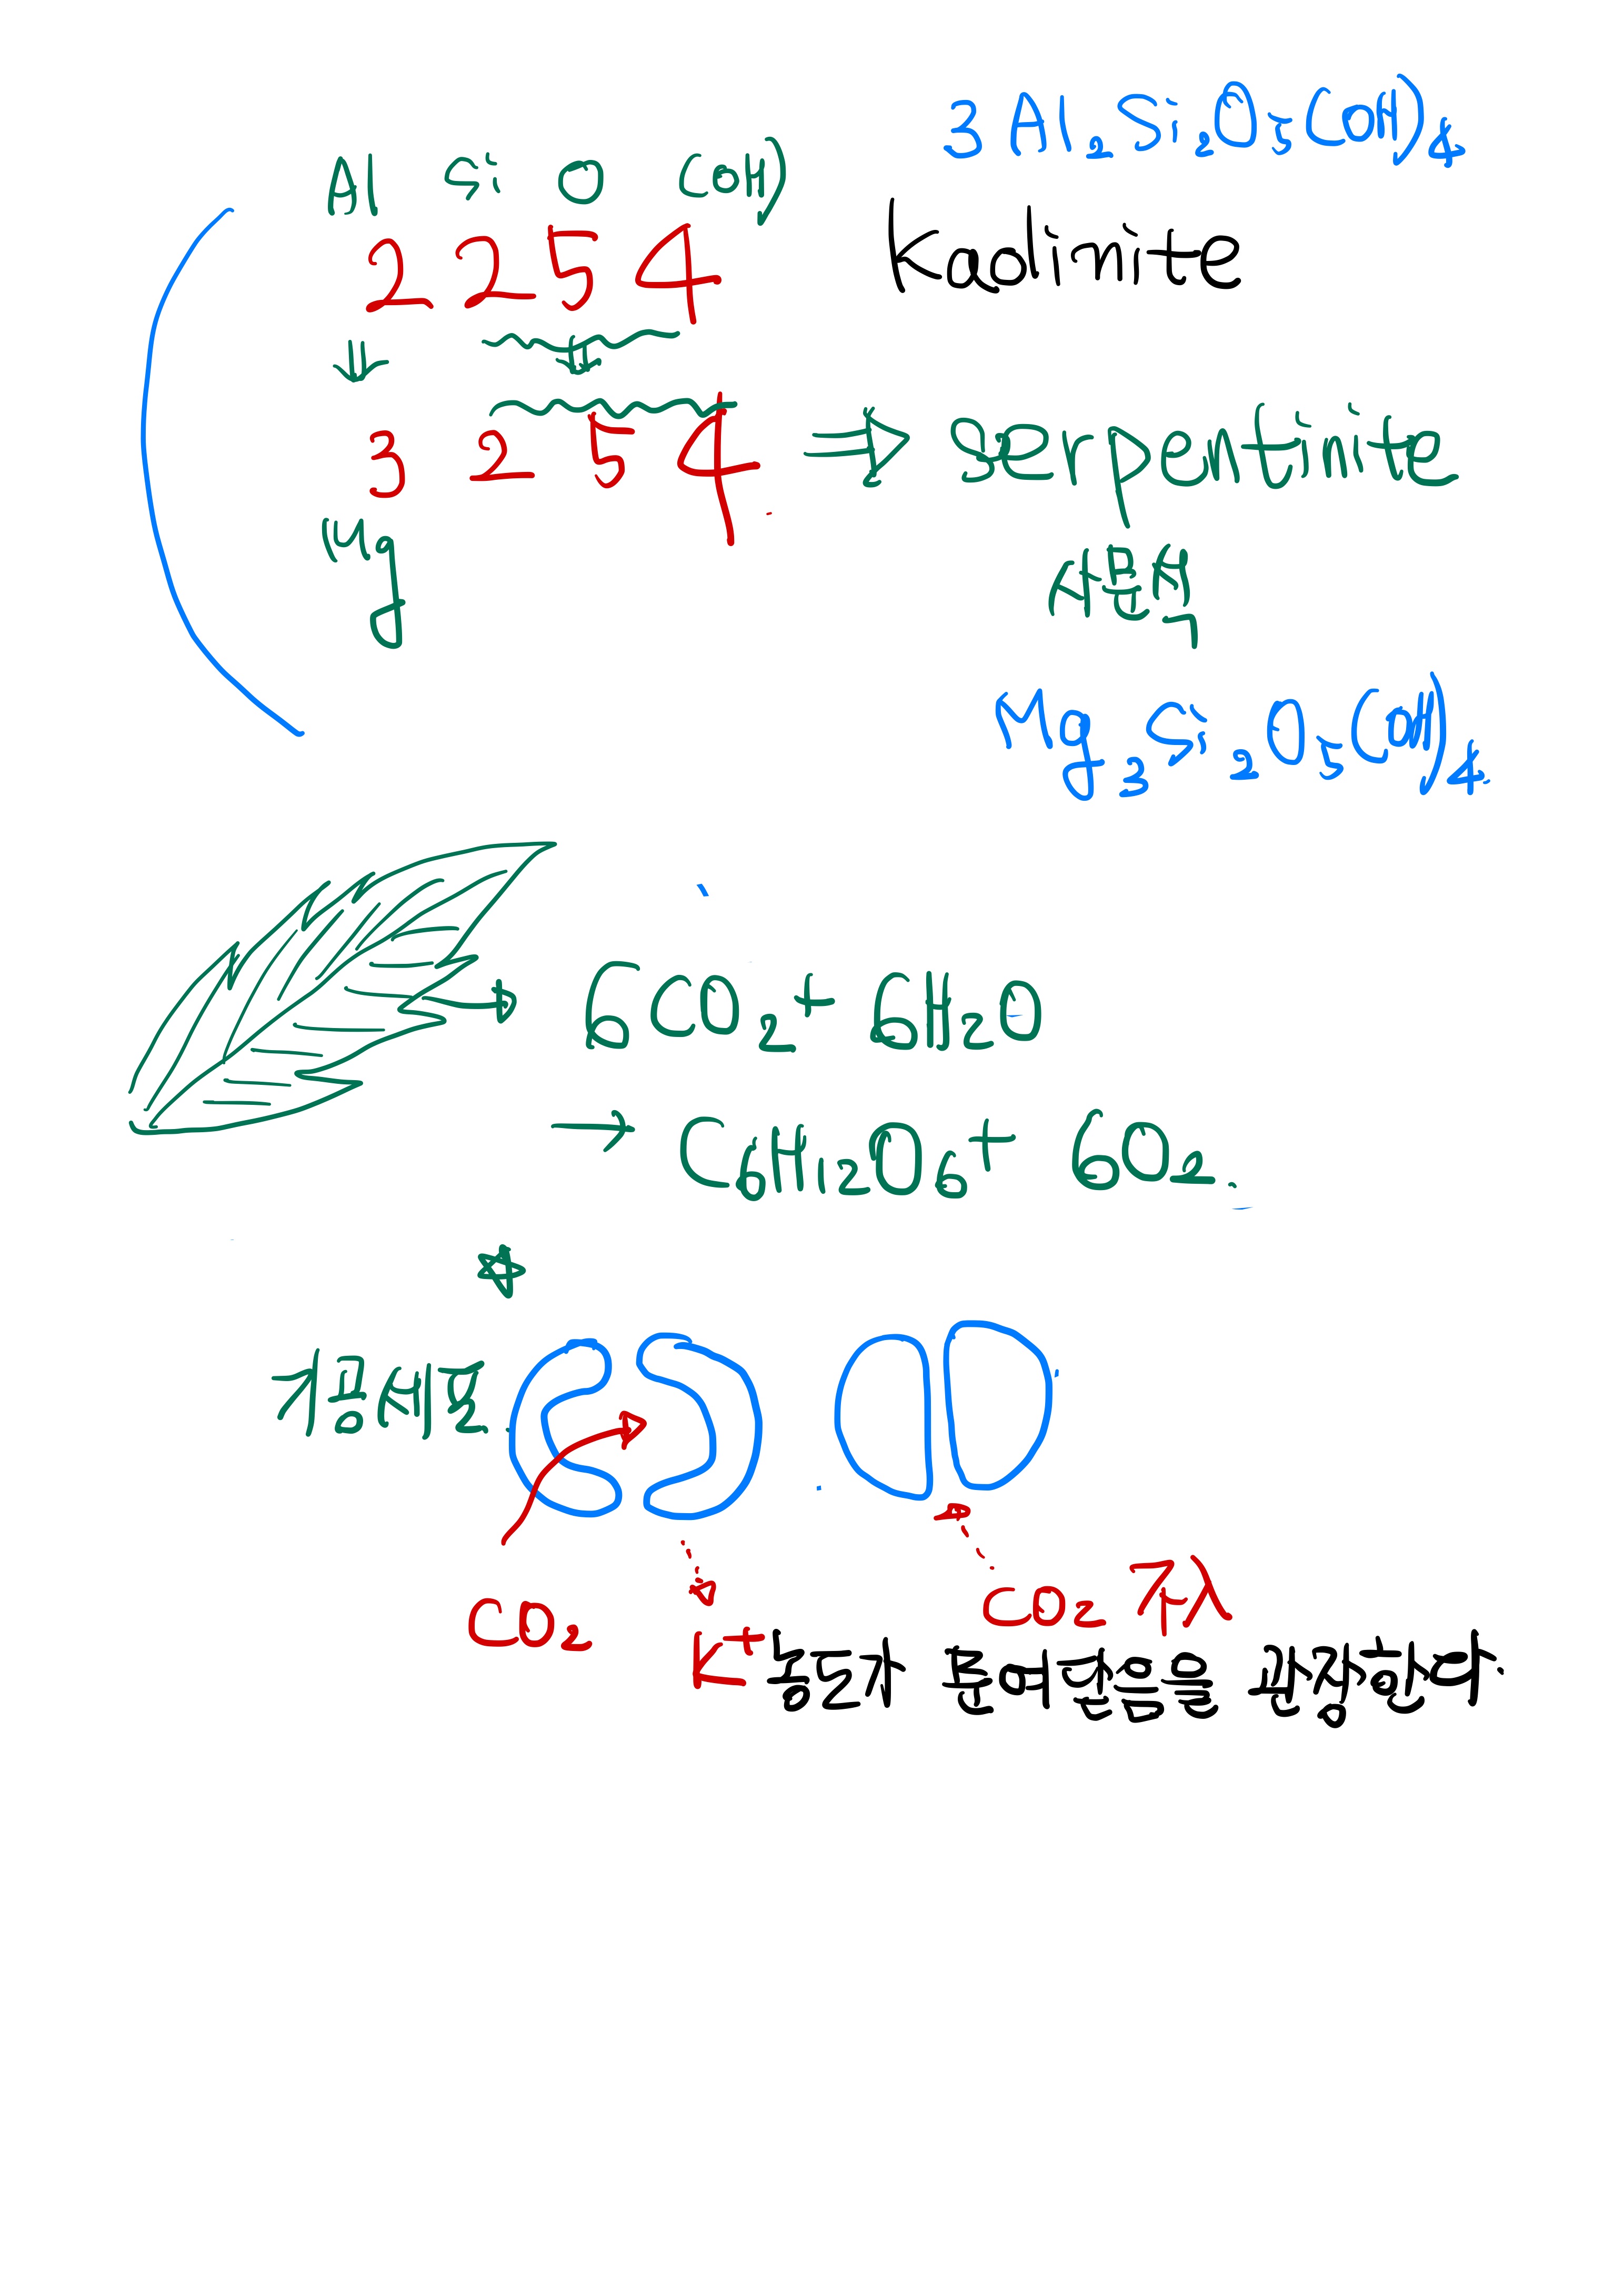 3 Al₂Si₂O₅(OH)₄
Al Si O (OH)
2 2 5 4 Kaolinite
3 2 5 4 ⇒ serpentinite
Mg
사문석
Mg₃Si₂O₅(OH)₄
→ 6CO₂ + 6H₂O
→ C₆H₁₂O₆ + 6O₂.
☆
공세포
CO₂
CO₂ 不入
K⁺ 농도가 문여닫음을 관장한다.